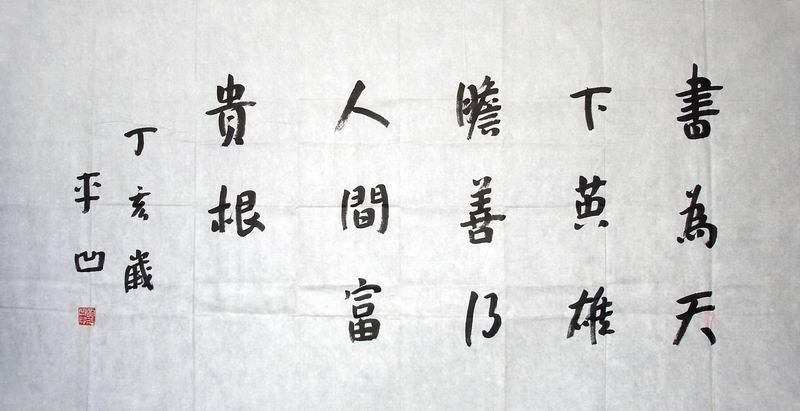 書為天
下英雄
瞻善乃
人間富
貴根
丁亥歲
平凹